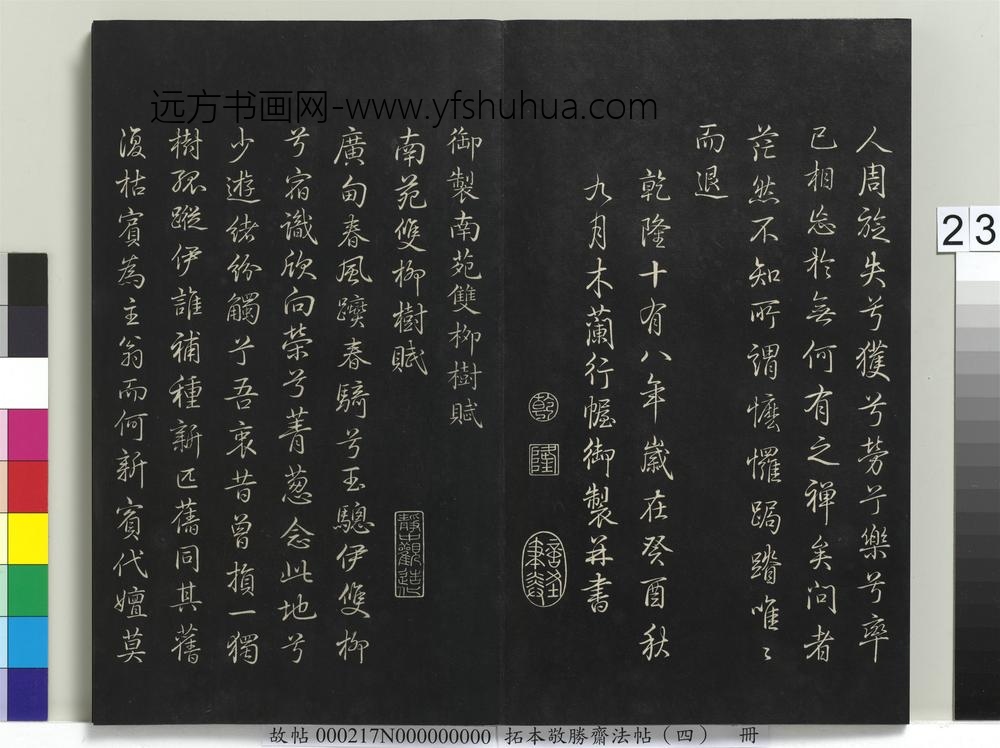 远方书画网-www.yfshuhua.com
人周旋失兮獲兮勞兮樂兮率
已相忘於無何有之禪矣問者
茫然不知所謂懡㦬跼蹐唯〻
而退
乾隆十有八年歲在癸酉秋
九月木蘭行幄御製并書
乾
隆
御製南苑雙柳樹賦
南苑雙柳樹賦
靜中觀造化
廣甸春風躋春騎兮玉驄伊雙柳
兮宿識欣向榮兮菁蔥念此地兮
少遊緒紛觸兮吾衷昔曾損一獨
樹孤蹤伊誰補種新匹舊同其舊
復枯賓為主翁而何新賓代嬗莫
23
故帖 000217N000000000 拓本敬勝齋法帖（四） 冊